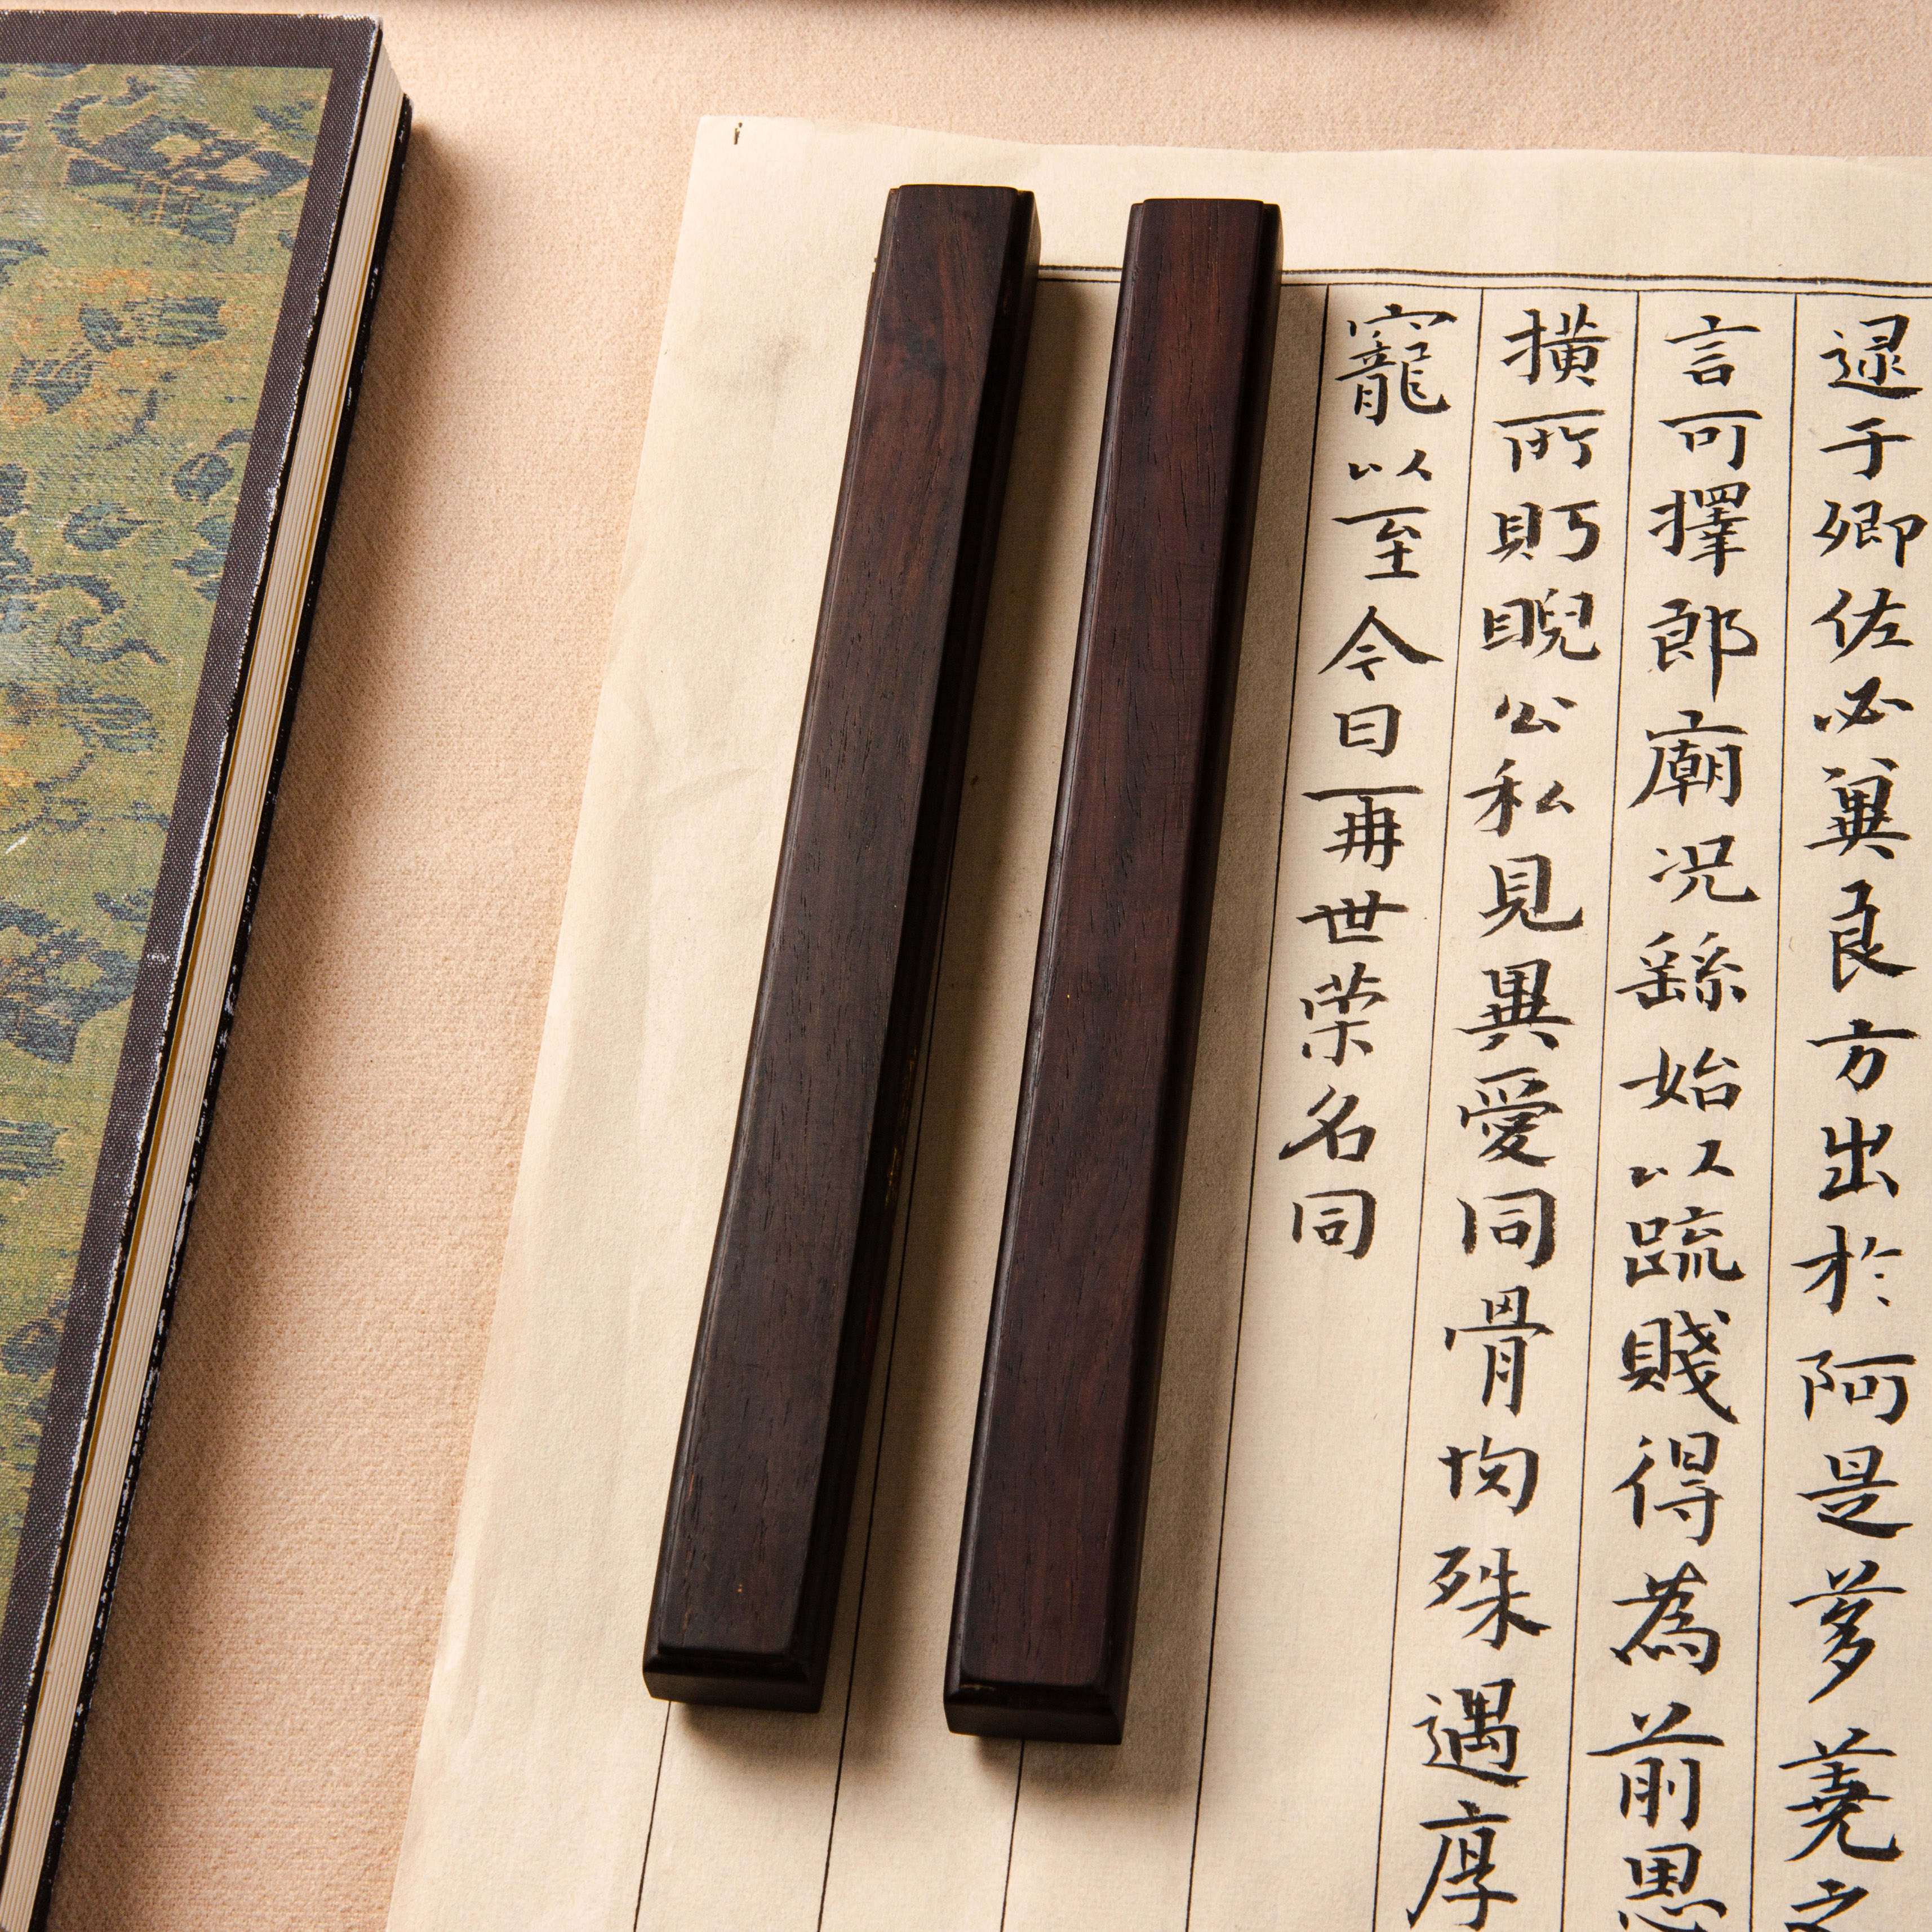 逮于卿佐必冀良方出於阿是芻蕘之
言可擇郎廟况繇始以疏賤得為前恩
横所眄睨公私見異愛同骨肉殊遇厚
寵以至今日再世荣名同